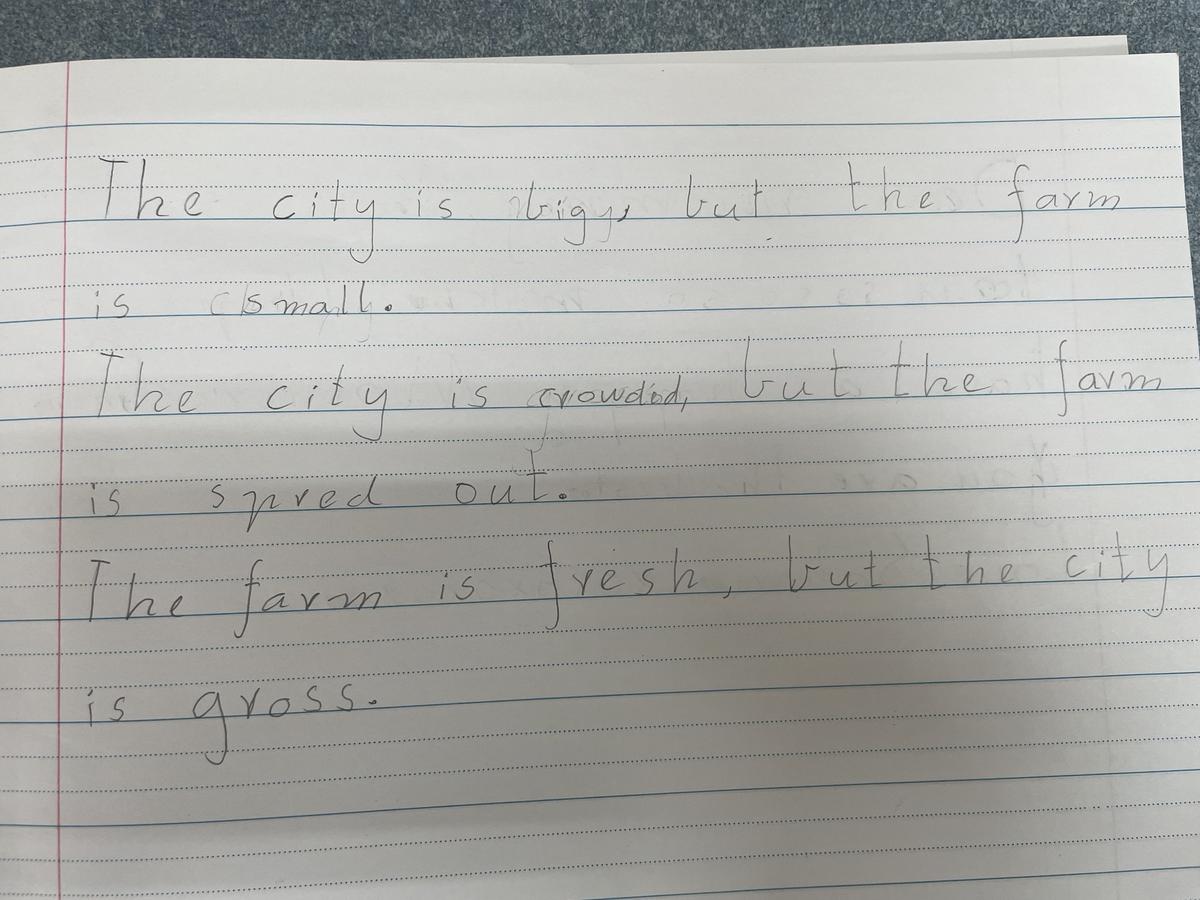 The city is big, but the farm
is small.
The city is crowdid, but the farm
is spred out.
The farm is fresh, but the city
is gross.